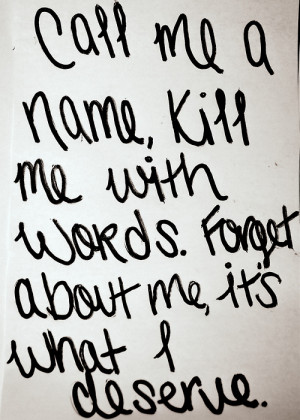 Call me a
name, Kill
me with
words. Forget
about me, it's
what I
deserve.